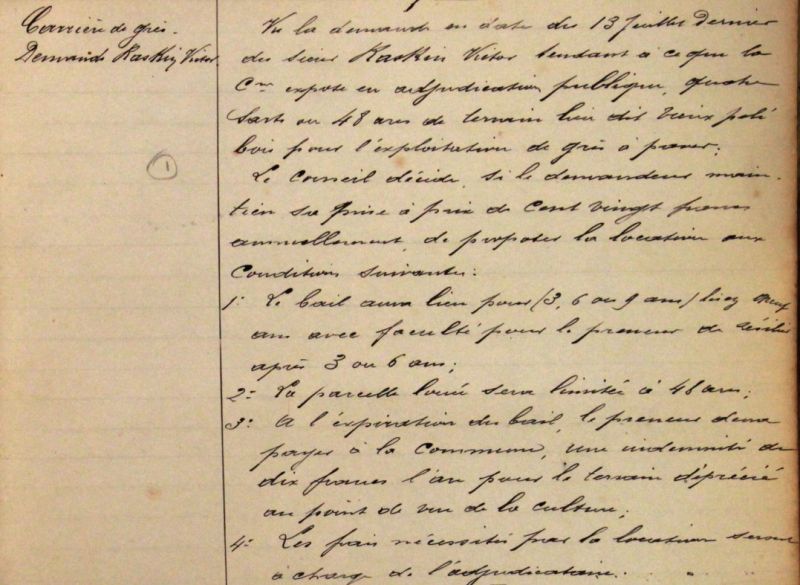 Carrière de grès.
Demande Raskin Victor
1
Vu la demande en date du 13 Juillet dernier
du sieur Raskin Victor tendant à ce que la
Cne expose en adjudication publique, quatre
Sarts ou 48 ares de terrain lieu dit Vieux
bois pour l'exploitation de grès à paver;
Le Conseil décide, si le demandeur main-
tien sa prise à prix de Cent vingt francs
annuellement, de proposer la location aux
Conditions suivantes:
1° Le bail aura lieu pour (3, 6 ou 9 ans) lisez neuf
ans avec faculté pour le preneur de résilier
après 3 ou 6 ans;
2° La parcelle louée sera limitée à 48 ares;
3° A l'expiration du bail, le preneur devra
payer à la Commune, une indemnité de
dix francs l'are pour le terrain déprécié
au point de vue de la culture;
4° Les frais nécessités par la location seront
à charge de l'adjudicataire.